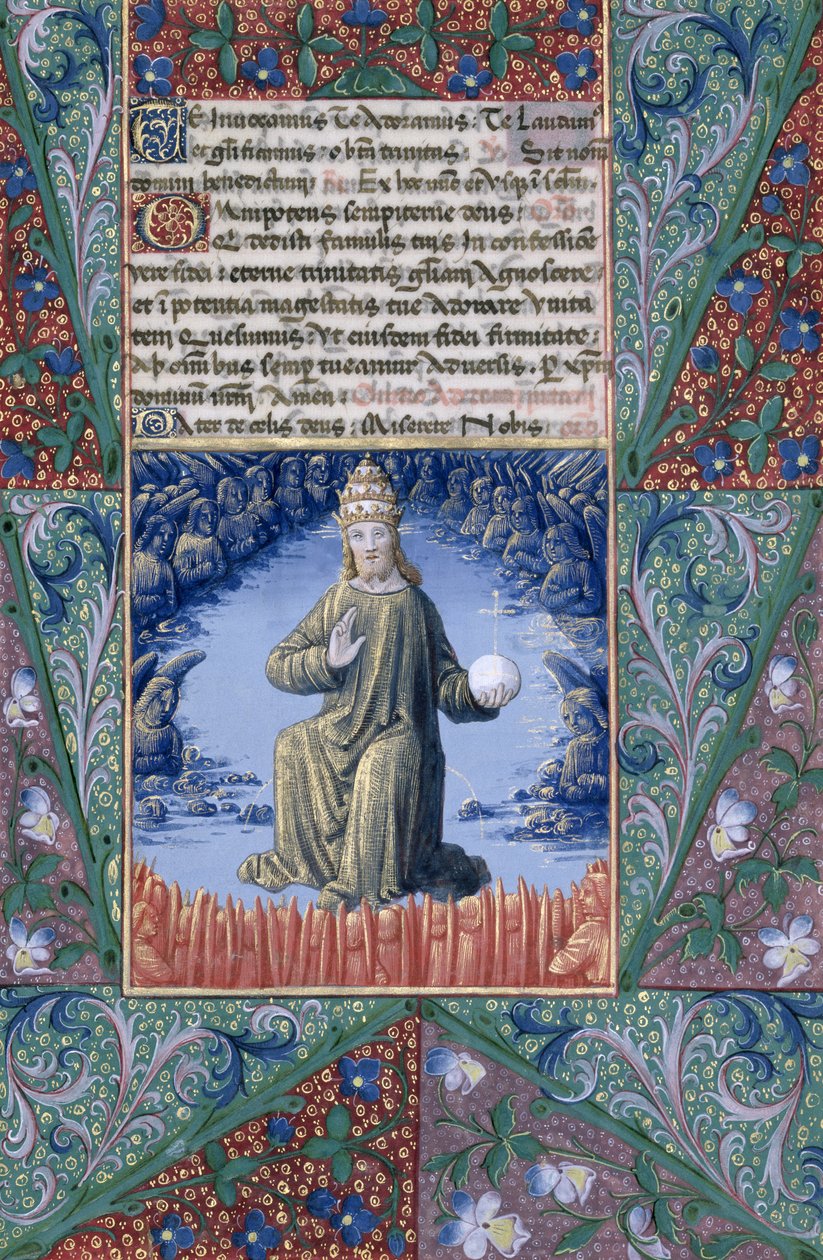 TE Invocamus Te Adoramus: Te Laudamꝰ
et glīficamus: o btā trinitas. Sit nom
domini benedictum: Ex hoc nūc et usq ī sclm.
Omnipotens sempiterne deus:
Q dedisti famulis tuis In confessione
vere fidei: eterne trinitatis glīam Agnoscere.
et ī potentia magestatis tue Adorare Unita
tem Quesumus. Ut eiusdem fidei firmitate:
Ab omībus semp tueamur Adversis. P xpm
dominū nrm. Amen.
Pater de celis deus: Miserere Nobis.